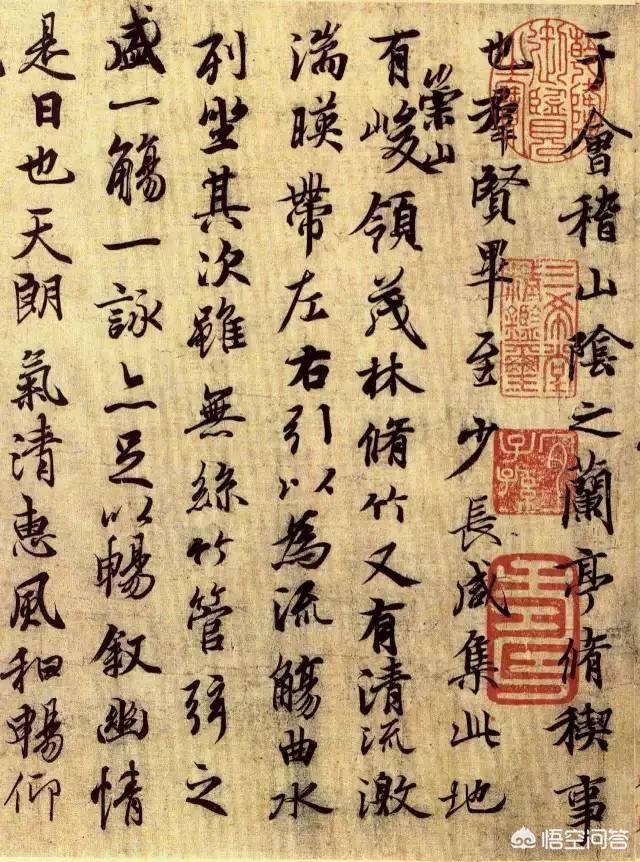 于會稽山陰之蘭亭脩稧事
也羣賢畢至少長咸集此地
有崇山峻領茂林脩竹又有清流激
湍暎帶左右引以為流觴曲水
列坐其次雖無絲竹管弦之
盛一觴一詠亦足以暢叙幽情
是日也天朗氣清惠風和暢仰
三希堂
精鑑璽
宜
子孫
悟空问答